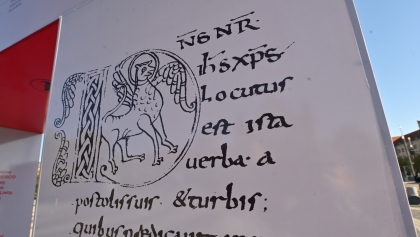 N̅S N̅R̅·
ıh̅s xp̅s
Locutus
est ista
uerba·a
postolissuis· &turbis;
quibus